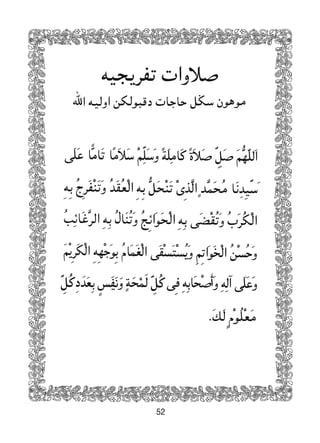 صلاوات تفريجيه
موهون سڬل حاجات دقبولكن اوليه الله
اَللّٰهُمَّ صَلِّ صَلاَةً كَامِلَةً وَسَلِّمْ سَلاَمًا تَامًّا عَلَى
سَيِّدِنَا مُحَمَّدٍ الَّذِىْ تَنْحَلُّ بِهِ الْعُقَدُ وَتَنْفَرِجُ بِهِ
الْكُرَبُ وَتُقْضَى بِهِ الْحَوَائِجُ وَتُنَالُ بِهِ الرَّغَائِبُ
وَحُسْنُ الْخَوَاتِمِ وَيُسْتَسْقَى الْغَمَامُ بِوَجْهِهِ الْكَرِيْمِ
وَعَلَى آلِهِ وَأَصْحَابِهِ فِى كُلِّ لَمْحَةٍ وَنَفَسٍ بِعَدَدِ كُلِّ
مَعْلُوْمٍ لَكَ.
52